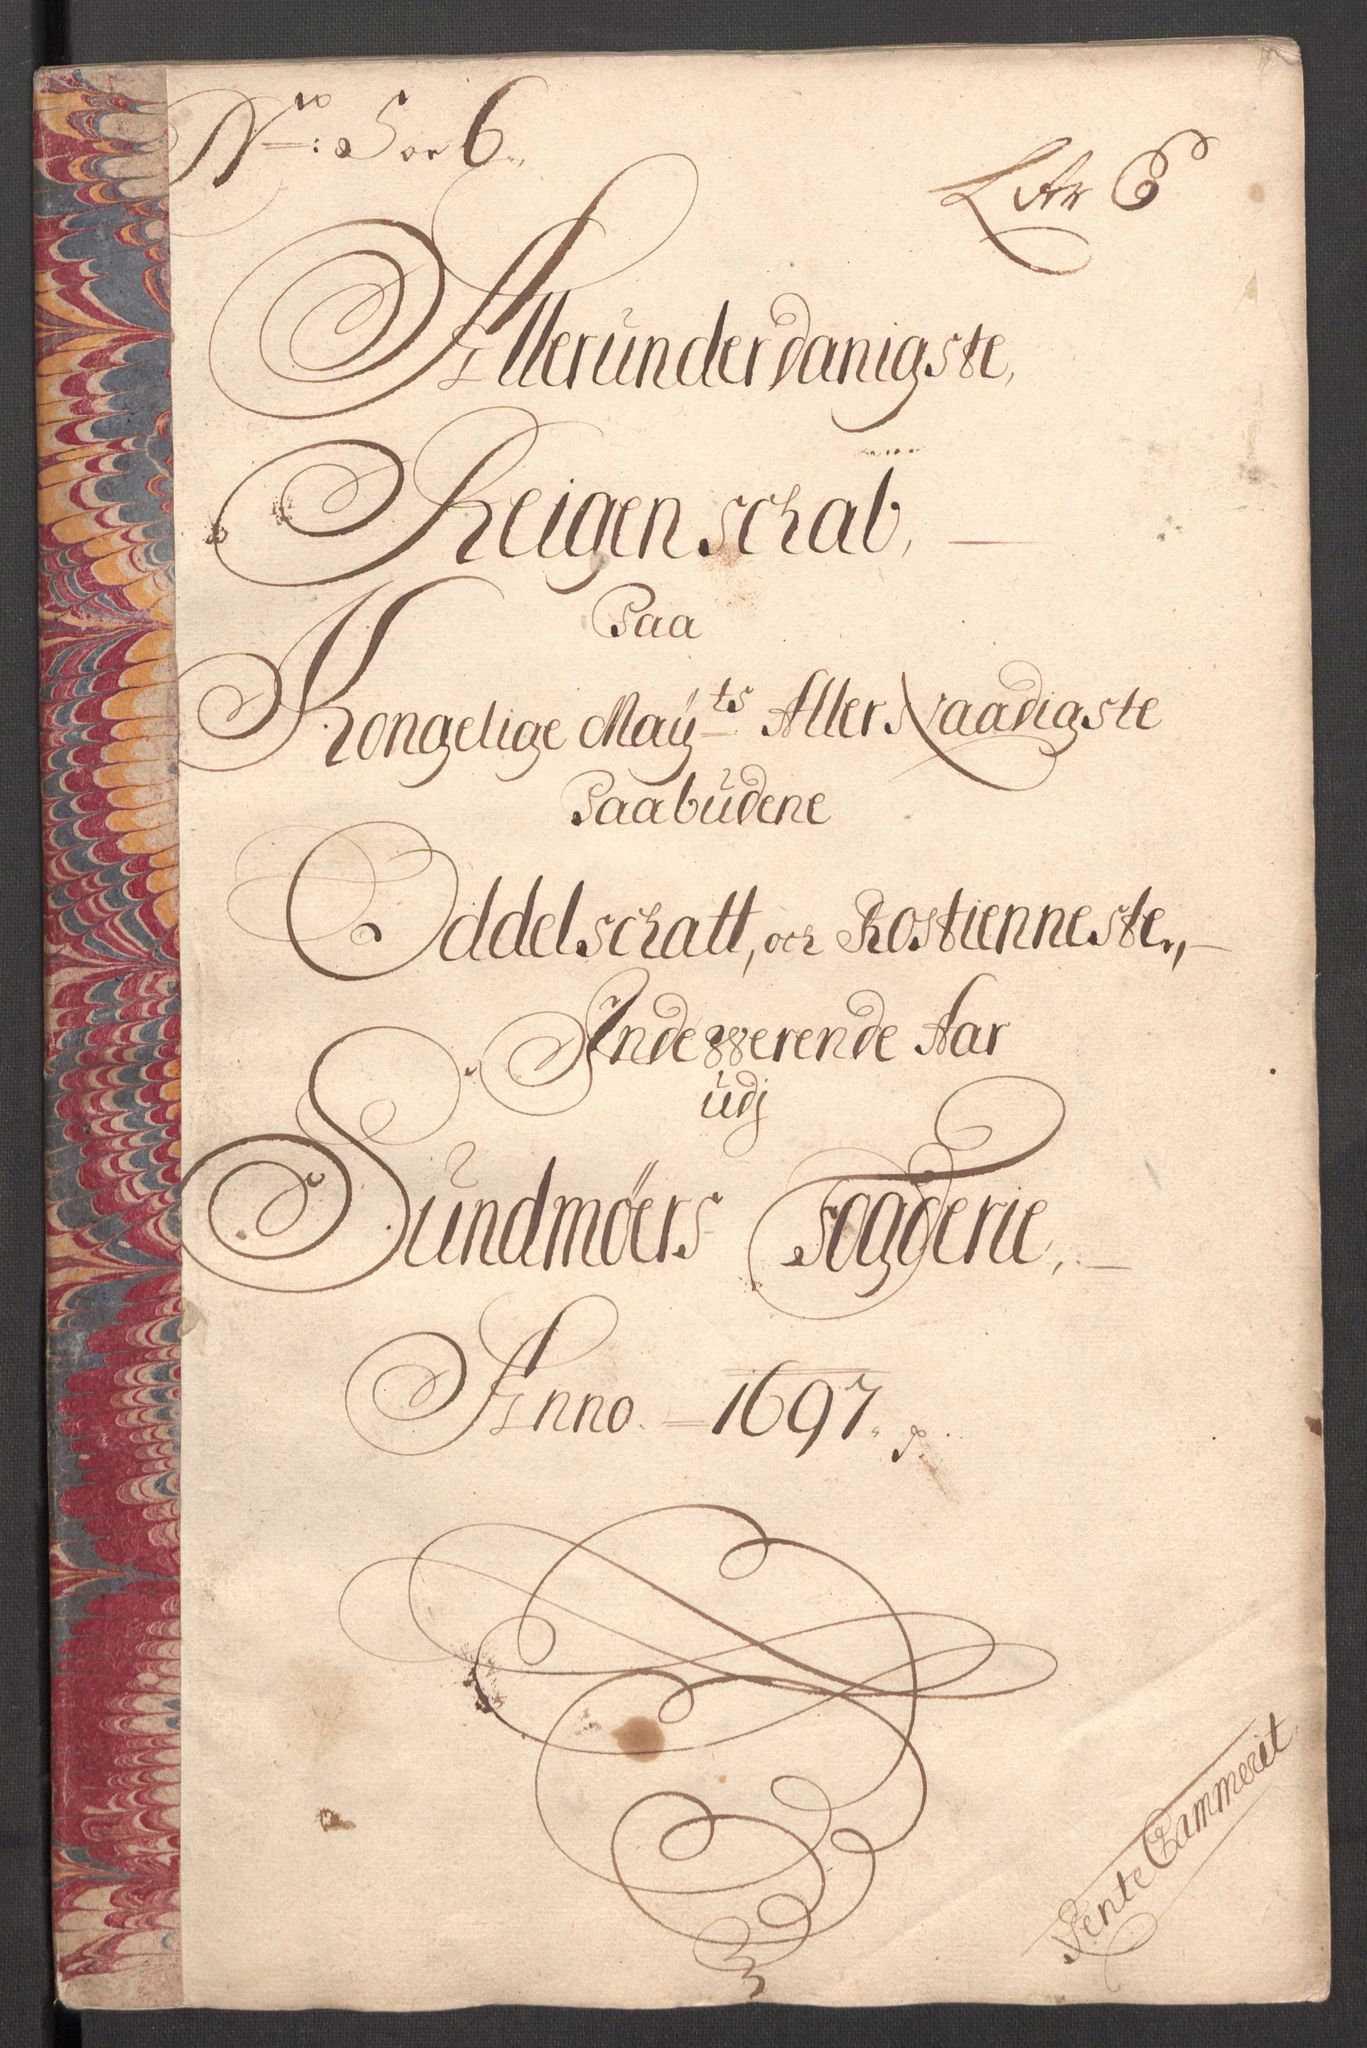 No: 5 or 6.
Litr E
Allerunderdanigste,
Reigenschab,
Paa
Kongelige Maÿts Aller Naadigste
Paabüdene
Oddelschatt, och Rostienneste,
Indewerende Aar
üdj
Sündmöers Fogderie,
Anno. 1697.
Rente Cammerit